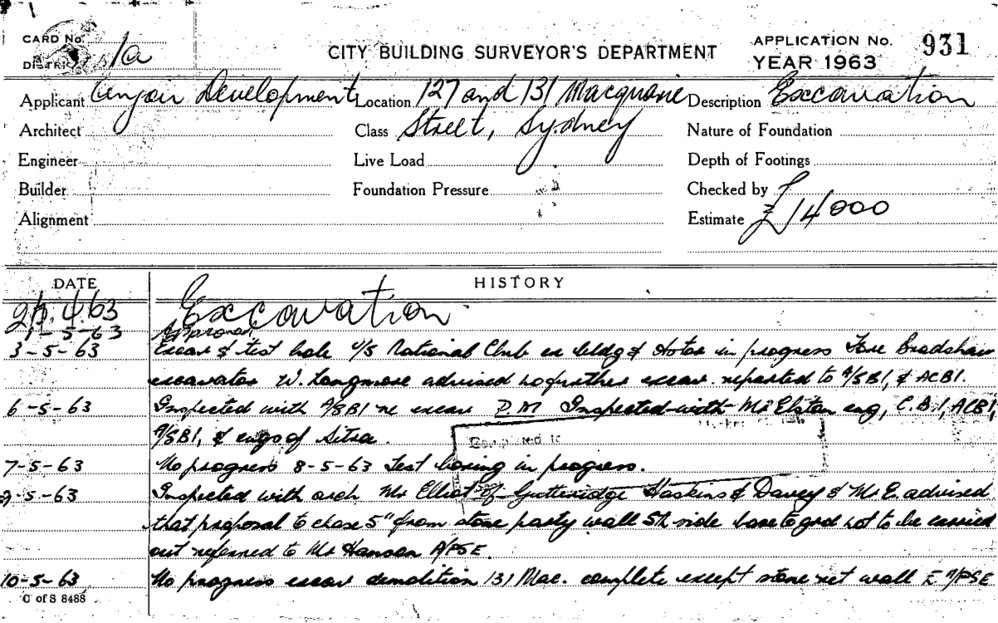 CARD No.
CITY BUILDING SURVEYOR'S DEPARTMENT
APPLICATION No. 931
YEAR 1963
DISTRICT 1a
Applicant Development Location 127 and 131 Macquarie Description Excavation
Architect Class Street, Sydney Nature of Foundation
Engineer Live Load Depth of Footings
Builder Foundation Pressure Checked by
Alignment Estimate £14000
DATE HISTORY
4.63 Excavation
1-5-63 Approved
3-5-63 Excav & test hole National Club ex bldg & in progress Bradshaw
excavator W. Longmore advised no further excav. reported to A/SBI, & ACBI.
6-5-63 Inspected with A/SBI re excav P.M Inspected with Mr Elsten eng, C.B.I, ACBI,
A/SBI, & engs of Sitra.
7-5-63 No progress 8-5-63 Test boring in progress.
9-5-63 Inspected with arch Mr Elliot of Gutteridge Haskins & Davey & Mr E. advised
that proposal to chase 5" from stone party wall Sth side base to grd not to be carried
out referred to Mr Hanson A/PSE.
10-5-63 No progress excav demolition 131 Mac. complete except stone ret wall E A/PSE
C of S 8488